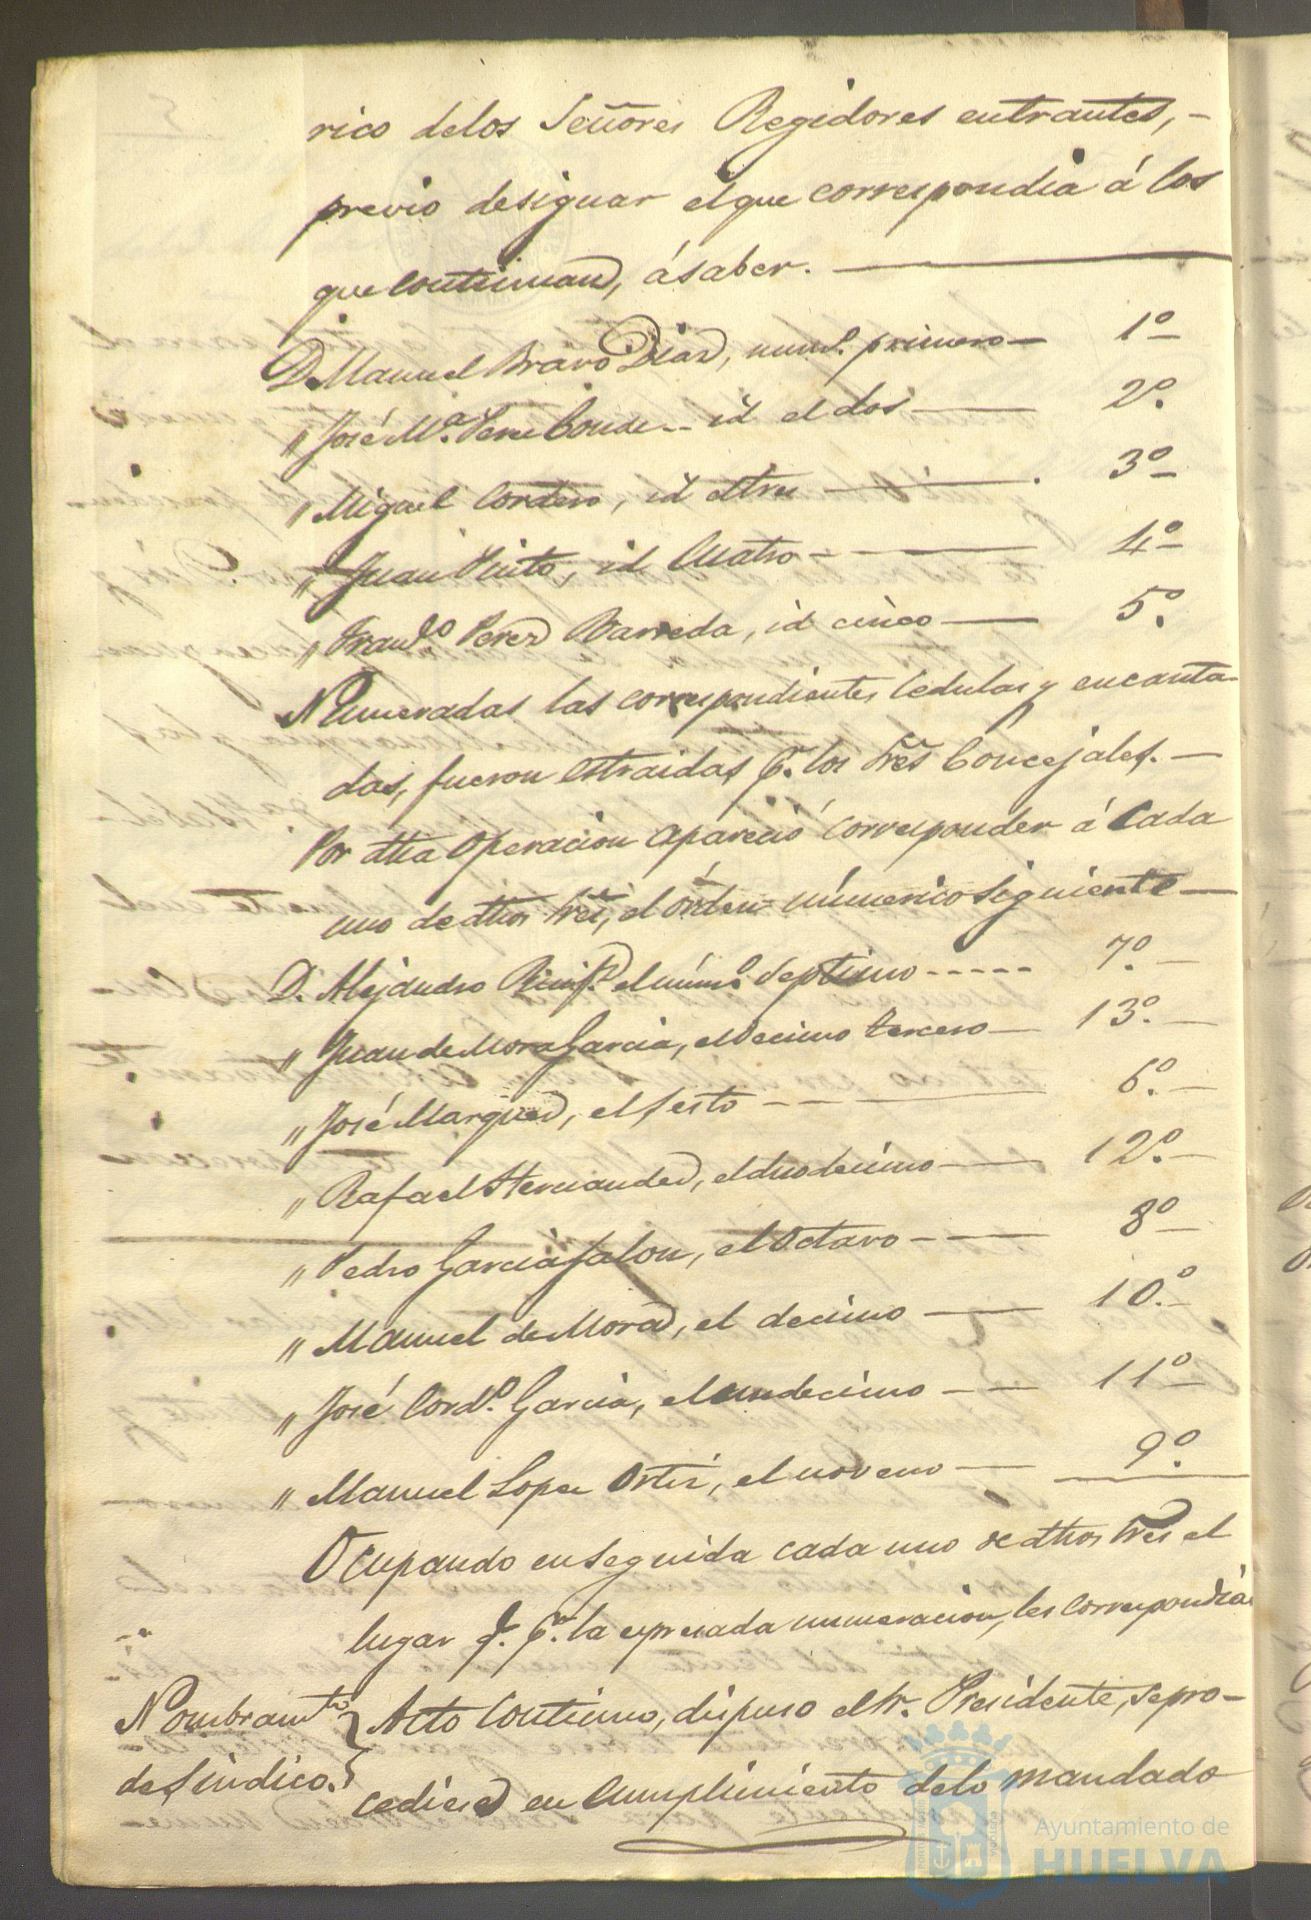 rico delos Señores Regidores entrantes, -
previo designar elque correspondia á los
que Continuan, ásaber.
D. Manuel Bravo Diaz, numo. primero 1º
" José Mª. Perez Conde -- id el dos 2º.
" Miguel Cordero, id eltres 3º
" Juan Pinto, id Cuatro 4º
" Franco. Perez Barreda, id cinco 5º.
Numeradas las correspondientes Cedulas y encanta-
das, fueron estraidas pr. los Sres Concejales.
Por dha Operacion apareció corresponder á Cada
uno de dhos Sres, el órden númerico siguiente
D. Alejandro elnúmo. Septimo ----- 7º.
" Juan de Mora Garcia, el Decimo tercero 13º.
" José Marquez, el sesto 6º.
" Rafael Hernandez, elduodecimo 12º.
" Pedro Garcia Jalon, el Octavo 8º
" Manuel de Mora, el decimo 10º.
" José Cordo. Garcia, elundecimo 11º
" Manuel Lopez Ortiz, el noveno 9º.
Ocupando enseguida cada uno de dhos Sres el
lugar q. pr. la espresada numeracion, les correspondia.
Nombramto
de Sindico.
Acto Continuo, dispuso el Sr. Presidente, sepro-
cediese en Cumplimiento delo mandado
Ayuntamiento de
HUELVA